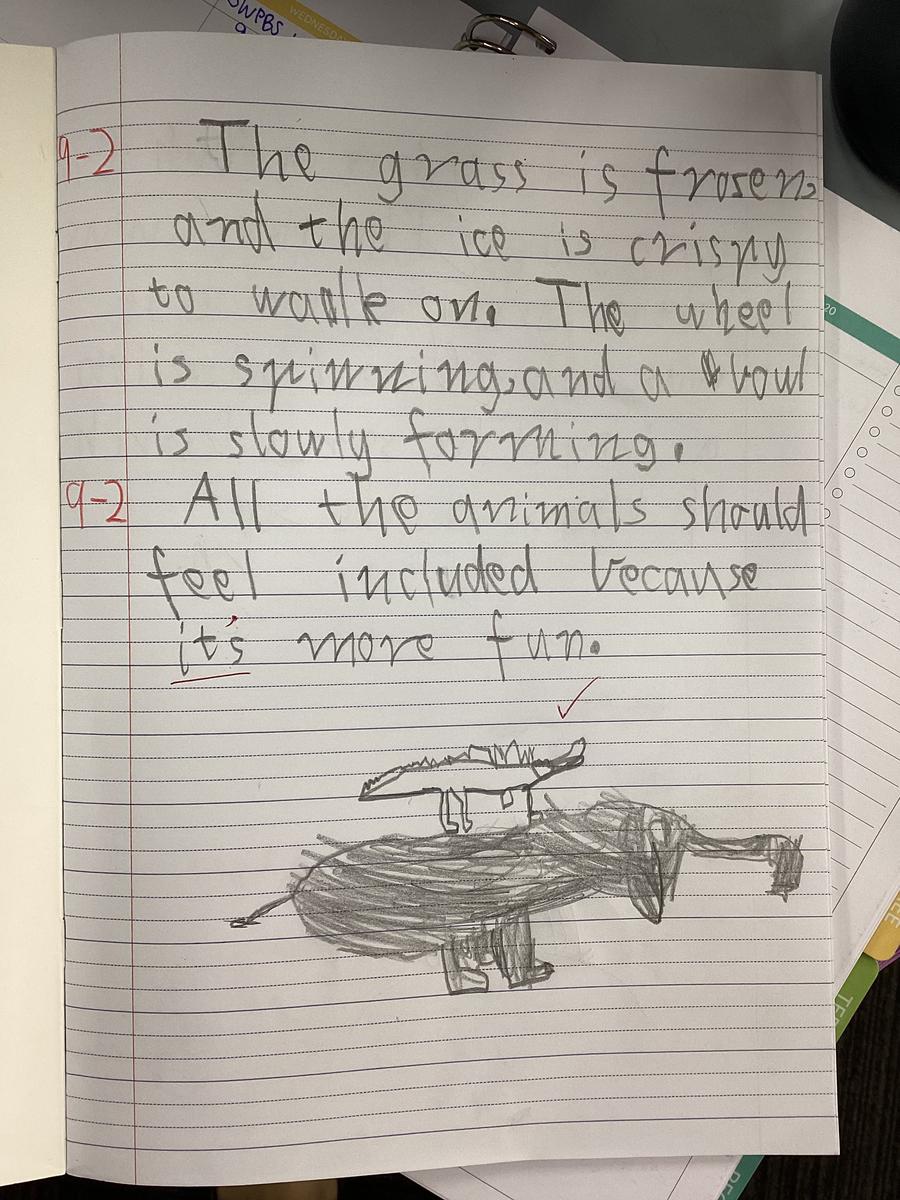 SWPBS
WEDNESDAY
9-2 The grass is frosen,
and the ice is crispy
to walk on. The wheel
is spinning, and a bowl
is slowly forming.
9-2 All the animals should
feel included because
it's more fun.
20